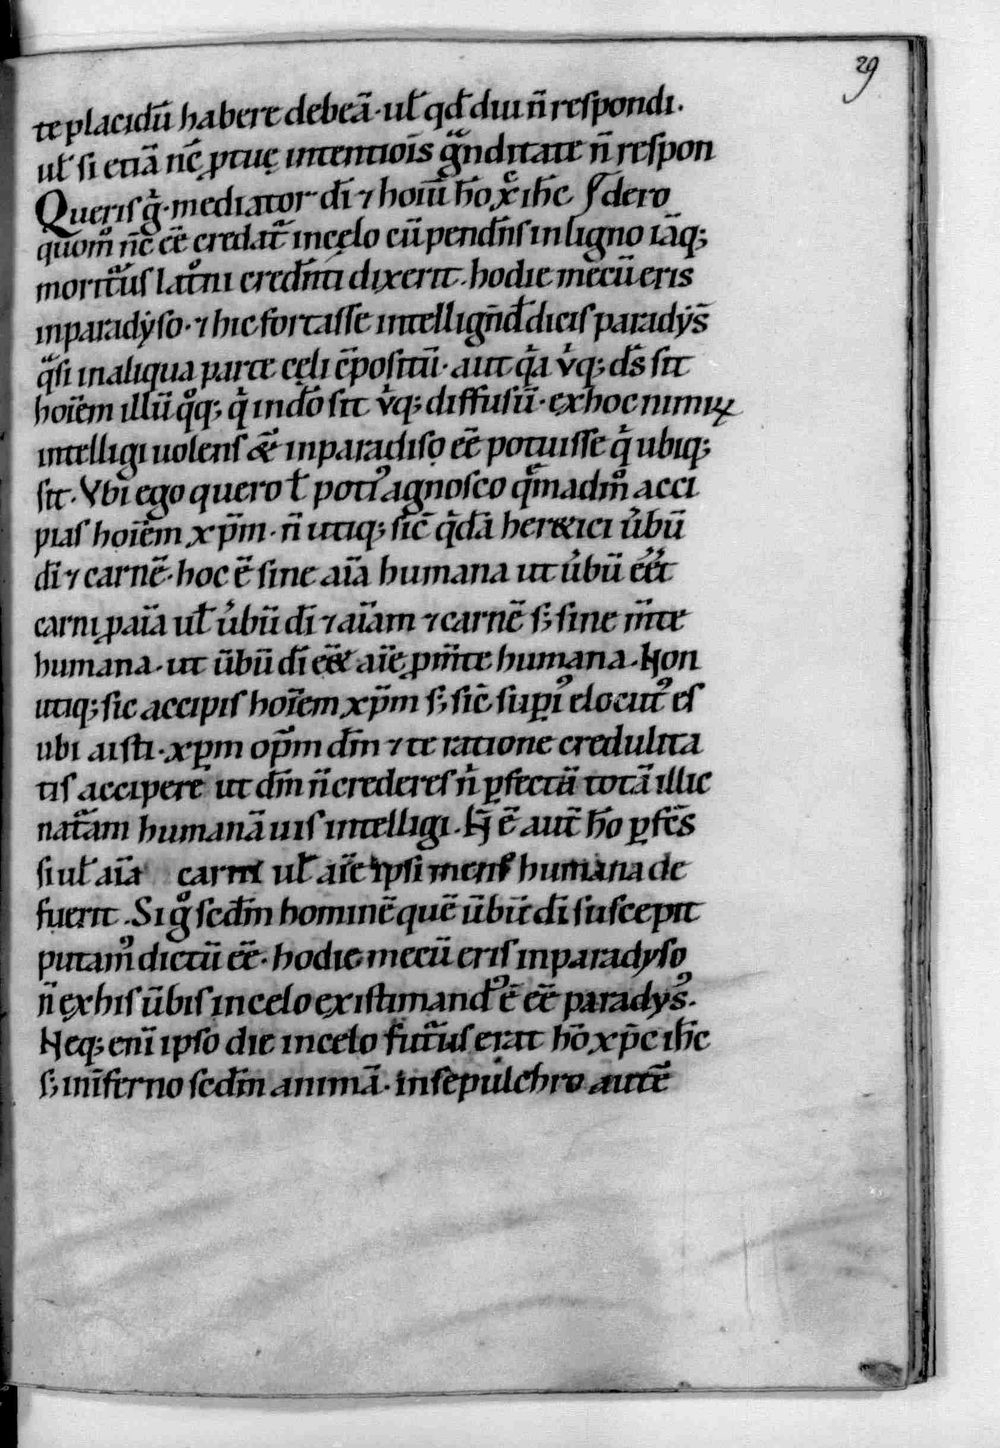 29
te placidū habere debeā · ul̄ qd̄ diu n̄ respondi .
ul̄ si etiā nc̄ ꝓ tuę intentiōis gͣnditate n̄ respon
Queris gͦ · mediator dī ⁊ hoīū hō xp̄c ih̄c
quom̊ nc̄ eē credat̄ in cęlo cū pendn̄s in ligno iāq;
moritͣus latͦni credn̄ti dixerit . hodie mecū eris
in paradẏso · ⁊ hic fortasse intellign̄d̄ dicis paradẏs̄
qͣsi in aliqua parte cęli c̄positū · aut qͥa vͥq; ds̄ sit
hoīem illū qͦq; qͥ in dō sit vͥq; diffusū · ex hoc nimiꝝ
intelligi uolens & in paradiso eē potuisse qͥ ubiq;
sit . Vbi ego quero ł potiꝰ agnosco qͤmadm̊ acci
pias hoīem xp̄m · n̄ utiq; sic̄ qͥdā her&ici uͥbū
dī ⁊ carnē · hoc ē sine aīa humana ut uͥbū eēt
carni ꝓ aīa ul̄ uͥbū dī ⁊ aīam ⁊ carnē s; sine m̄te
humana · ut ūbū dī eē& aīę ꝓ m̄te humana . Non
utiq; sic accipis hoīem xp̄m s; sic̄ supiꝰ elocutꝰ es
ubi aisti · xp̄m op̄m dm̄ ⁊ te ratione credulita
tis accipere ut dm̄ n̄ crederes nͥ ꝑfectā totā illic
natͣam humanā uis intelligi . N̄ ē aut̄ hō ꝑfcs̄
si ul̄ aīa carni ul̄ aīe ipsi mens humana de
fuerit . Si gͦ scdm̄ hominē quē ūbū dī suscepit
putamꝰ dictū eē · hodie mecū eris in paradyso
n̄ ex his ūbis in celo existimandꝰ ē eē paradysꝰ .
Neq; enī ipso die in celo futͣus erat hō xp̄c ih̄c
s; in īferno scdm̄ animā · in sepulchro autē